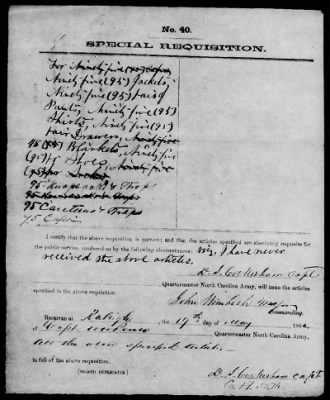 No. 40.
SPECIAL REQUISITION.
For Ninety five (95) Caps
Ninety five (95) Jackets,
Ninety five (95) Pairs of
Pants, Ninety five (95)
Shirts, Ninety five (95)
Pair Drawers, Ninety five
95 (95) Blankets, Ninety five
(95) Pr Shoes, Ninety five
(95) pr Socks
95 Knapsacks & Straps
95 Haversacks & Straps
95 Canteens & Straps
I certify that the above requisition is correct; and that the articles specified are absolutely requisite for
the public service, rendered so by the following circumstances: viz, I have never
received the above articles.
Capt
Quartermaster North Carolina Army, will issue the articles
specified in the above requisition.
John
Commanding.
Received at Raleigh the 19th day of May 1862
of Capt
Quartermaster North Carolina Army.
all the above specified articles
in full of the above requisition.
[SIGNED DUPLICATES]
Capt